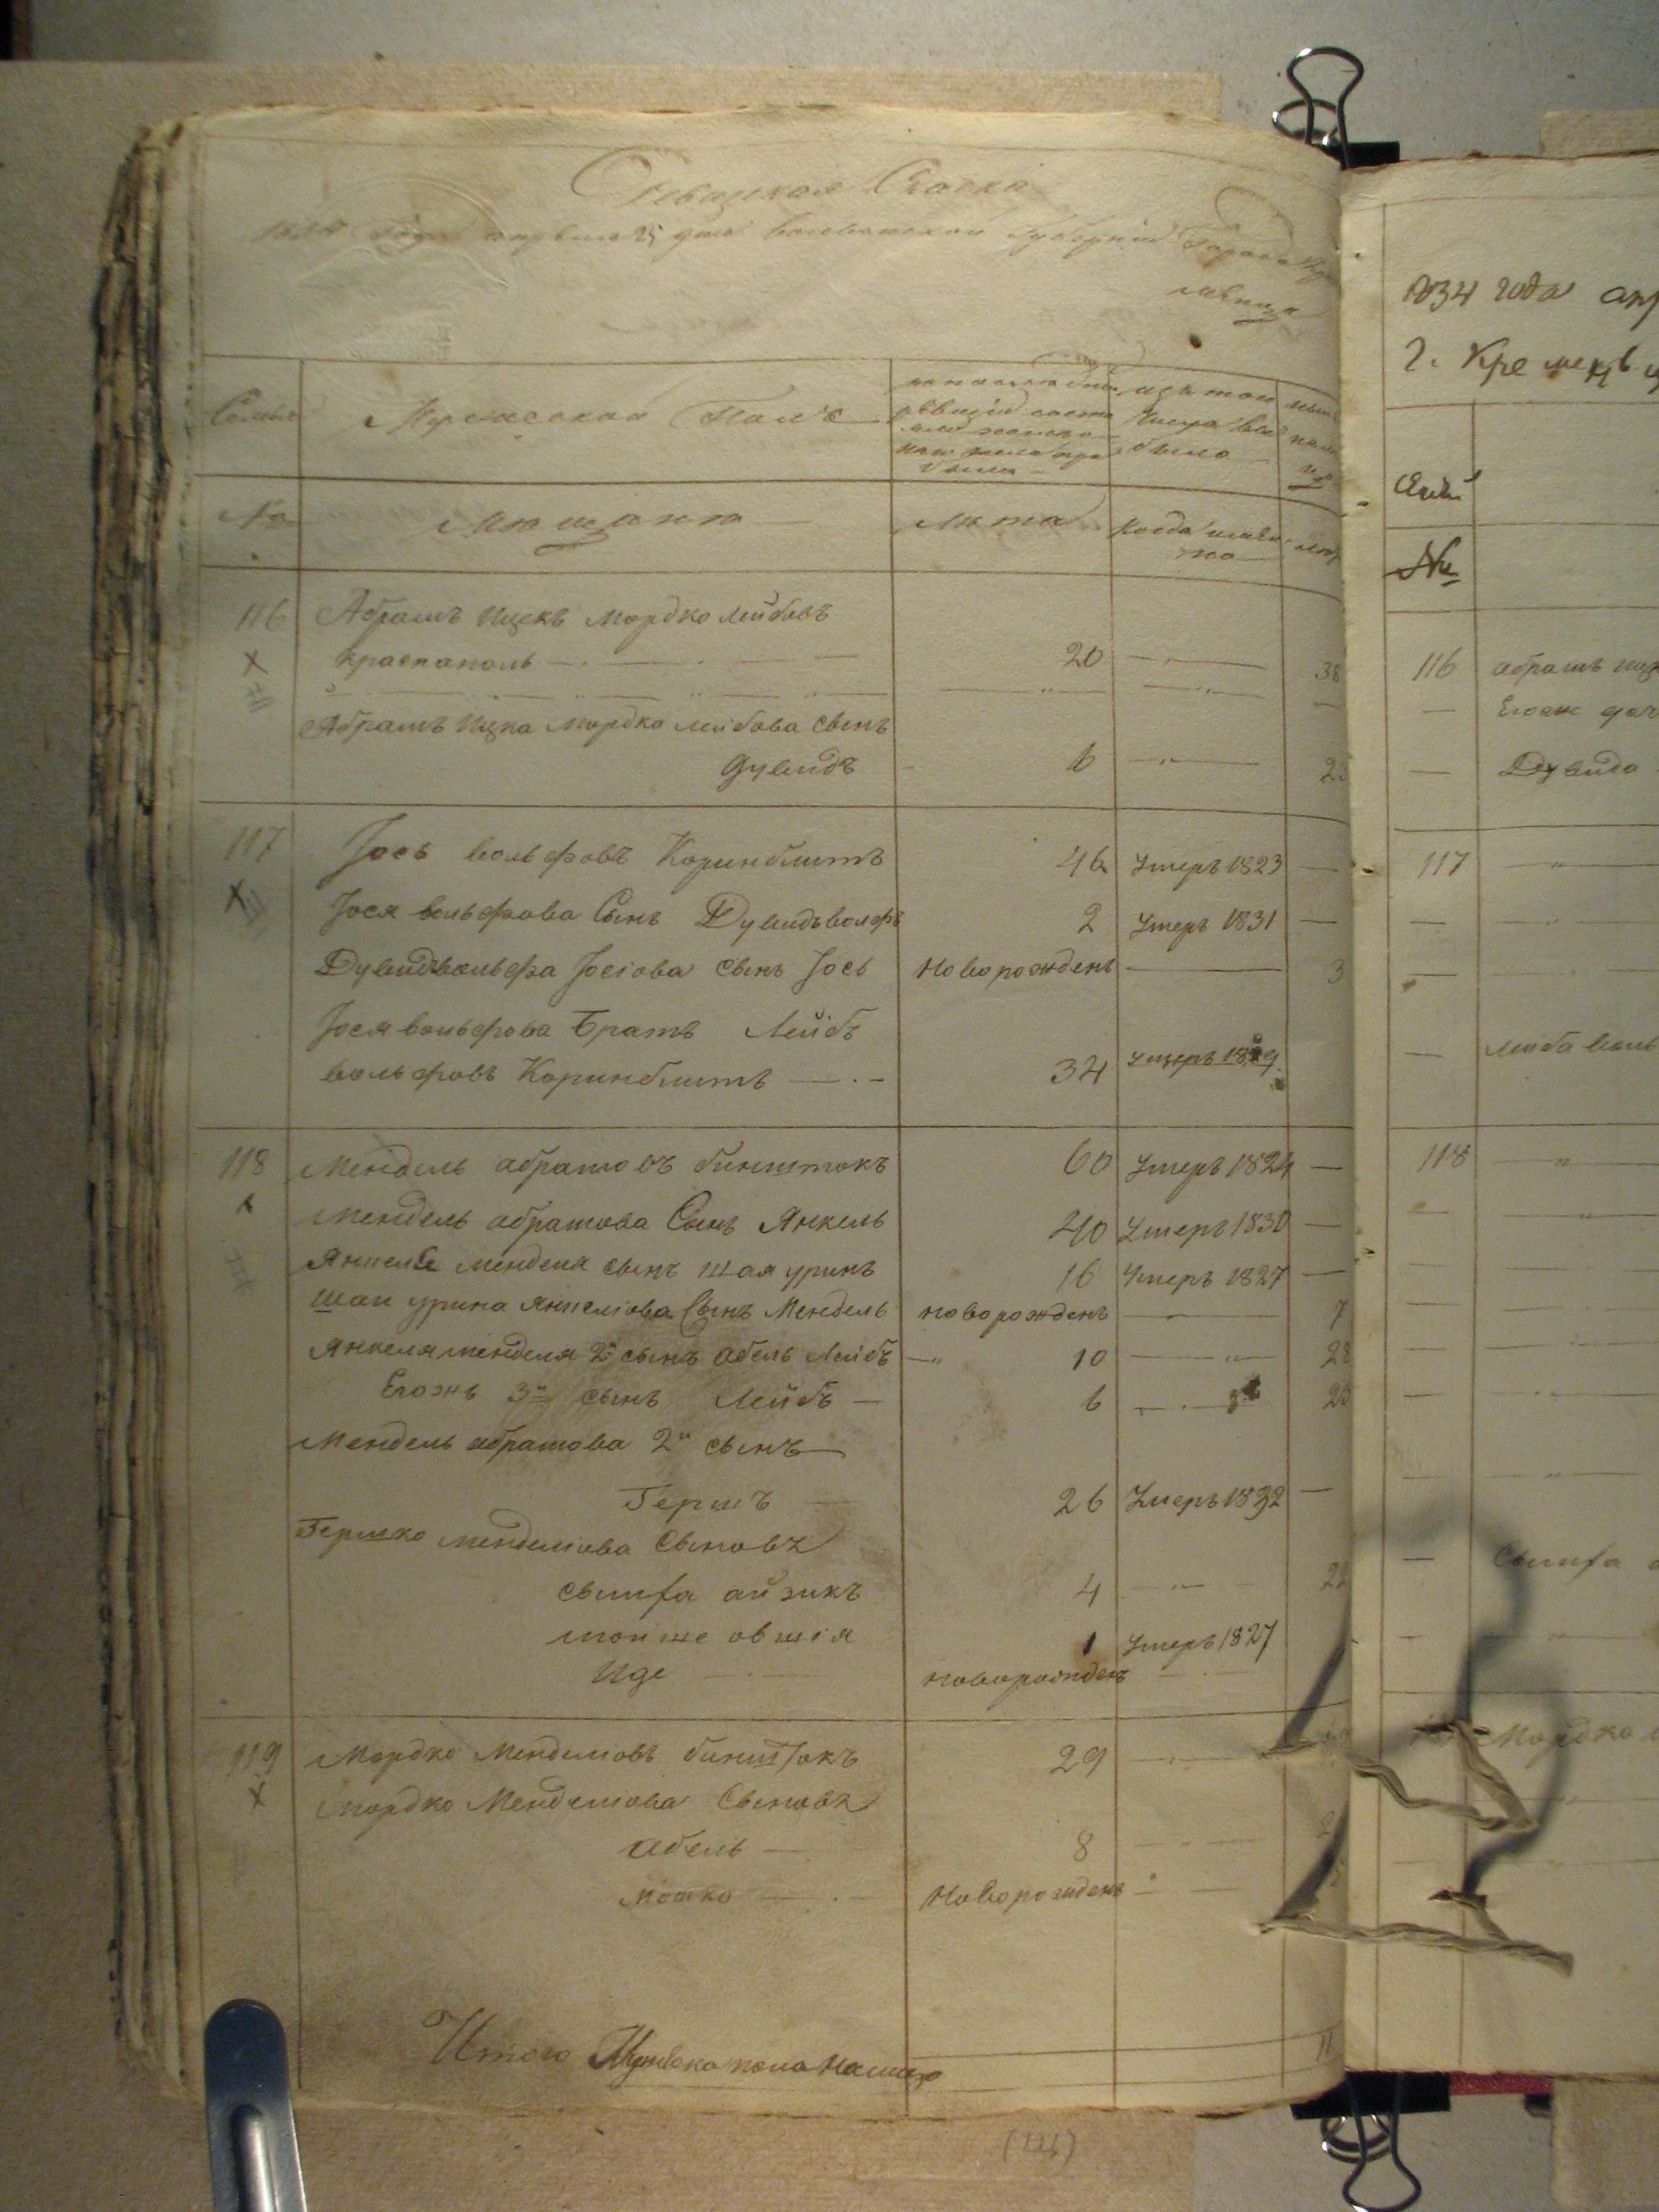 Ревизская Сказка
1834 Года апреля 25 дня волынской Губернии Города Кре
менца
Семьи
Мужеской Полъ
изъ того
числа вы
было
№
Мѣщанѣ
Лѣта
Когда имян
но
лѣт
116 Абрамъ Ицекъ Мордко Лейбовъ
Краснополь 20 38
Абрамъ Ицка Мордко Лейбова сынъ
Дувидъ 6 23
117 Іось вольфовъ Коринблитъ 46 Умеръ 1823
Іося вольфова Сынъ Дувидъвольфъ 2 Умеръ 1831
Дувидвольфа Іосіова сынъ Іось Новорожденъ 3
Іося вольфова Братъ Лейбъ
вольфовъ Коринблитъ 34 Умеръ
118 Мендель абрамовъ бинштокъ 60 Умеръ 1824
Мендель абрамова Сынъ Янкель 40 Умеръ 1830
Янкеля Менделя сынъ Шая уринъ 16 Умеръ 1827
Шаи урина Янкеліова Сынъ Мендель новорожденъ 7
Янкеля Менделя 2й сынъ Абель Лейбъ 10 28
Егожъ 3й сынъ Лейбъ 6
Мендель абрамова 2й сынъ
Гершъ 26 Умеръ 1832
Гершко Менделіова Сыновъя
айзикъ 4 22
мойше овшія 1 Умеръ 1827
Иде новорожденъ
119 Мордко Менделіовъ бинштокъ 29
Мордко Менделіова Сыновъя
Абель 8
Мошко Новорожденъ
Итого Мужеска пола
11
1834 года апр
г. Кременц
Семьи
№
116 абрамъ
Егоже доч
Дувида
117
Лейба воль
118
Мордко